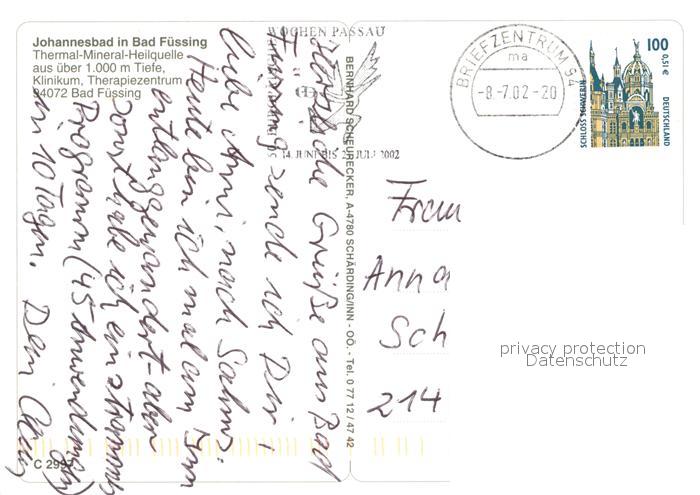 Johannesbad in Bad Füssing
Thermal-Mineral-Heilquelle
aus über 1.000 m Tiefe,
Klinikum, Therapiezentrum
94072 Bad Füssing
WOCHEN PASSAU
14. JUNI BIS JULI 2002
BRIEFZENTRUM 94
ma
-8.-7.02-20
100
0,51 €
SCHLOSS SCHWERIN
DEUTSCHLAND
BERNHARD SCHEURECKER, A-4780 SCHÄRDING/INN - OÖ. - Tel. 0 77 12 / 47 42
Herzliche Grüße aus Bad
Füssing sende ich Dir,
liebe Anni, nach Sahms.
Heute bin ich mal am Inn
entlanggewandert - aber
sonst habe ich ein strammes
Programm (45 Anwendungen)
in 10 Tagen. Dein
Frau
Anna
Sch
214
privacy protection
Datenschutz
C 2997